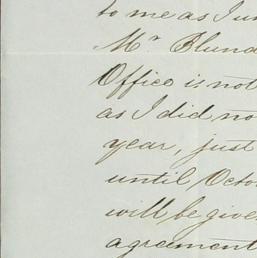 to me as I un
Mr Blund
Office is not
as I did no
year, just
until Octo
will be give
agreement